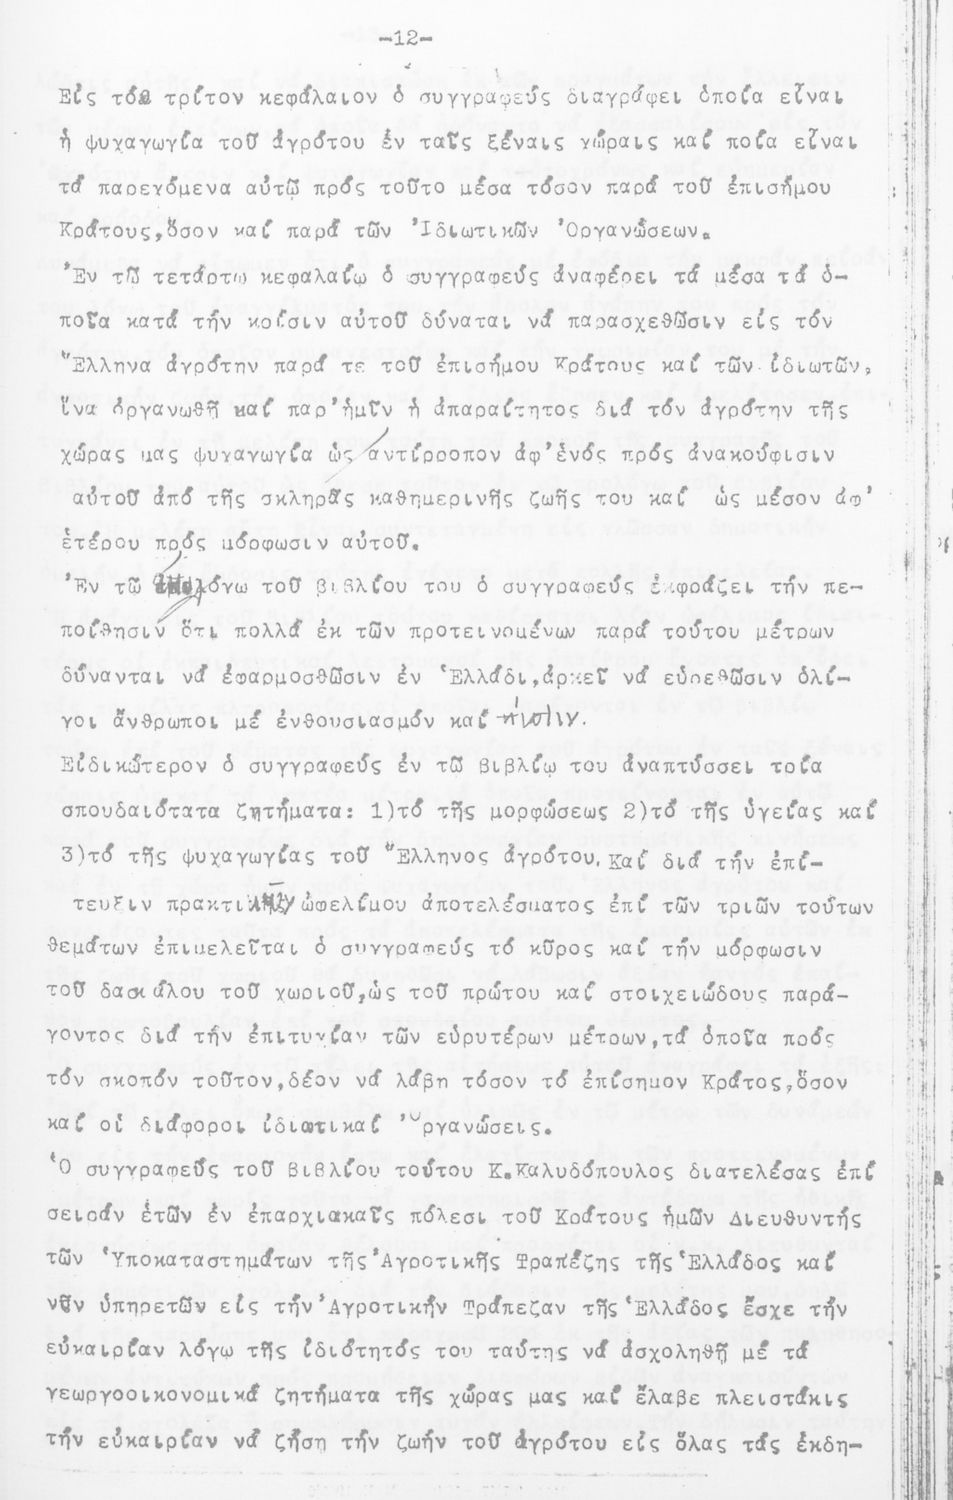 -12-
Εἰς τό τρίτον κεφάλαιον ὁ συγγραφεύς διαγράφει ὁποία εἶναι
ἡ ψυχαγωγία τοῦ ἀγρότου ἐν ταῖς ξέναις χώραις καί ποία εἶναι
τά παρεχόμενα αὐτῷ πρός τοῦτο μέσα τόσον παρά τοῦ ἐπισήμου
Κράτους,ὅσον καί παρά τῶν Ἰδιωτικῶν Ὀργανώσεων.
Ἐν τῷ τετάρτῳ κεφαλαίῳ ὁ συγγραφεύς ἀναφέρει τά μέσα τά ὁ-
ποῖα κατά τήν κρίσιν αὐτοῦ δύναται νά παρασχεθῶσιν εἰς τόν
Ἕλληνα ἀγρότην παρά τε τοῦ ἐπισήμου Κράτους καί τῶν ἰδιωτῶν,
ἵνα ὀργανωθῇ καί παρ'ἡμῖν ἡ ἀπαραίτητος διά τόν ἀγρότην τῆς
χώρας μας ψυχαγωγία ὡς ἀντίρροπον ἀφ'ἑνός πρός ἀνακούφισιν
αὐτοῦ ἀπό τῆς σκληρᾶς καθημερινῆς ζωῆς του καί ὡς μέσον ἀφ'
ἑτέρου πρός μόρφωσιν αὐτοῦ.
Ἐν τῷ λόγω τοῦ βιβλίου του ὁ συγγραφεύς ἐκφράζει τήν πε-
ποίθησιν ὅτι πολλά ἐκ τῶν προτεινομένων παρά τούτου μέτρων
δύνανται νά ἐφαρμοσθῶσιν ἐν Ἑλλάδι,ἀρκεῖ νά εὑρεθῶσιν ὀλί-
γοι ἄνθρωποι μέ ἐνθουσιασμόν καί πίστιν.
Εἰδικώτερον ὁ συγγραφεύς ἐν τῷ βιβλίῳ του ἀναπτύσσει τρία
σπουδαιότατα ζητήματα: 1)τό τῆς μορφώσεως 2)τό τῆς ὑγείας καί
3)τό τῆς ψυχαγωγίας τοῦ Ἕλληνος ἀγρότου. Καί διά τήν ἐπί-
τευξιν πρακτικῶς ὠφελίμου ἀποτελέσματος ἐπί τῶν τριῶν τούτων
θεμάτων ἐπιμελεῖται ὁ συγγραφεύς τό κῦρος καί τήν μόρφωσιν
τοῦ δασκάλου τοῦ χωριοῦ,ὡς τοῦ πρώτου καί στοιχειώδους παρά-
γοντος διά τήν ἐπιτυχίαν τῶν εὐρυτέρων μέτρων,τά ὁποῖα πρός
τόν σκοπόν τοῦτον,δέον νά λάβῃ τόσον τό ἐπίσημον Κράτος,ὅσον
καί οἱ διάφοροι ἰδιωτικαί Ὀργανώσεις.
Ὁ συγγραφεύς τοῦ βιβλίου τούτου Κ.Καλυδόπουλος διατελέσας ἐπί
σειράν ἐτῶν ἐν ἐπαρχιακαῖς πόλεσι τοῦ Κράτους ἡμῶν Διευθυντής
τῶν Ὑποκαταστημάτων τῆς Ἀγροτικῆς Τραπέζης τῆς Ἑλλάδος καί
νῦν ὑπηρετῶν εἰς τήν Ἀγροτικήν Τράπεζαν τῆς Ἑλλάδος ἔσχε τήν
εὐκαιρίαν λόγῳ τῆς ἰδιότητός του ταύτης νά ἀσχοληθῇ μέ τά
γεωργοοικονομικά ζητήματα τῆς χώρας μας καί ἔλαβε πλειστάκις
τήν εὐκαιρίαν νά ζήσῃ τήν ζωήν τοῦ ἀγρότου εἰς ὅλας τάς ἐκδη-